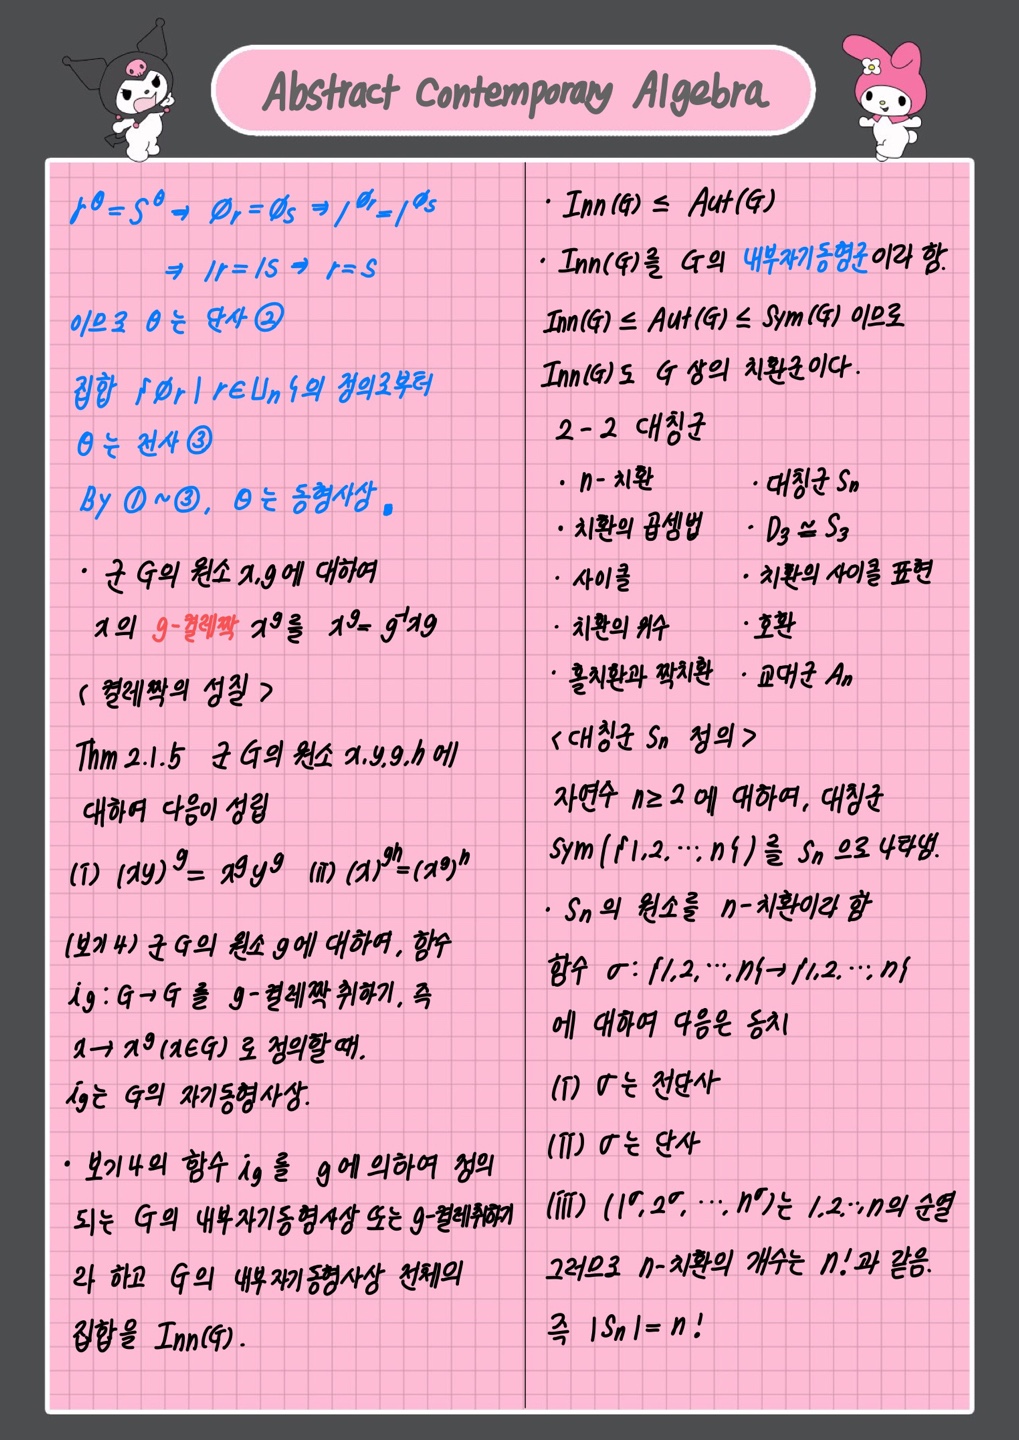 Abstract Contemporary Algebra
r^θ = s^θ → ∅r = ∅s ⇒ 1^∅r = 1^∅s
⇒ 1r = 1s ⇒ r = s
이므로 θ는 단사 ②
집합 {∅r | r∈Un}의 정의로부터
θ는 전사 ③
By ①~③, θ는 동형사상.
· 군 G의 원소 x,g에 대하여
x의 g-켤레짝 x^g를 x^g = g^-1xg
<켤레짝의 성질>
Thm 2.1.5 군 G의 원소 x,y,g,h에
대하여 다음이 성립
(i) (xy)^g = x^g y^g (ii) (x)^gh = (x^g)^h
(보기4) 군 G의 원소 g에 대하여, 함수
ig : G→G 를 g-켤레짝 취하기, 즉
x→x^g (x∈G) 로 정의할 때,
ig는 G의 자기동형사상.
· 보기4의 함수 ig를 g에 의하여 정의
되는 G의 내부자기동형사상 또는 g-켤레취하기
라 하고 G의 내부자기동형사상 전체의
집합을 Inn(G).
· Inn(G) ≤ Aut(G)
· Inn(G)를 G의 내부자기동형군이라 함.
Inn(G) ≤ Aut(G) ≤ Sym(G) 이므로
Inn(G)도 G 상의 치환군이다.
2-2 대칭군
· n-치환 · 대칭군 Sn
· 치환의 곱셈법 · D3 ≃ S3
· 사이클 · 치환의 사이클 표현
· 치환의 위수 · 호환
· 홀치환과 짝치환 · 교대군 An
<대칭군 Sn 정의>
자연수 n≥2에 대하여, 대칭군
Sym({1,2,…,n})를 Sn으로 나타냄.
· Sn의 원소를 n-치환이라 함
함수 σ: {1,2,…,n}→{1,2,…,n}
에 대하여 다음은 동치
(i) σ는 전단사
(ii) σ는 단사
(iii) (1^σ, 2^σ, …, n^σ)는 1,2,…,n의 순열
그러므로 n-치환의 개수는 n!과 같음.
즉 |Sn| = n!